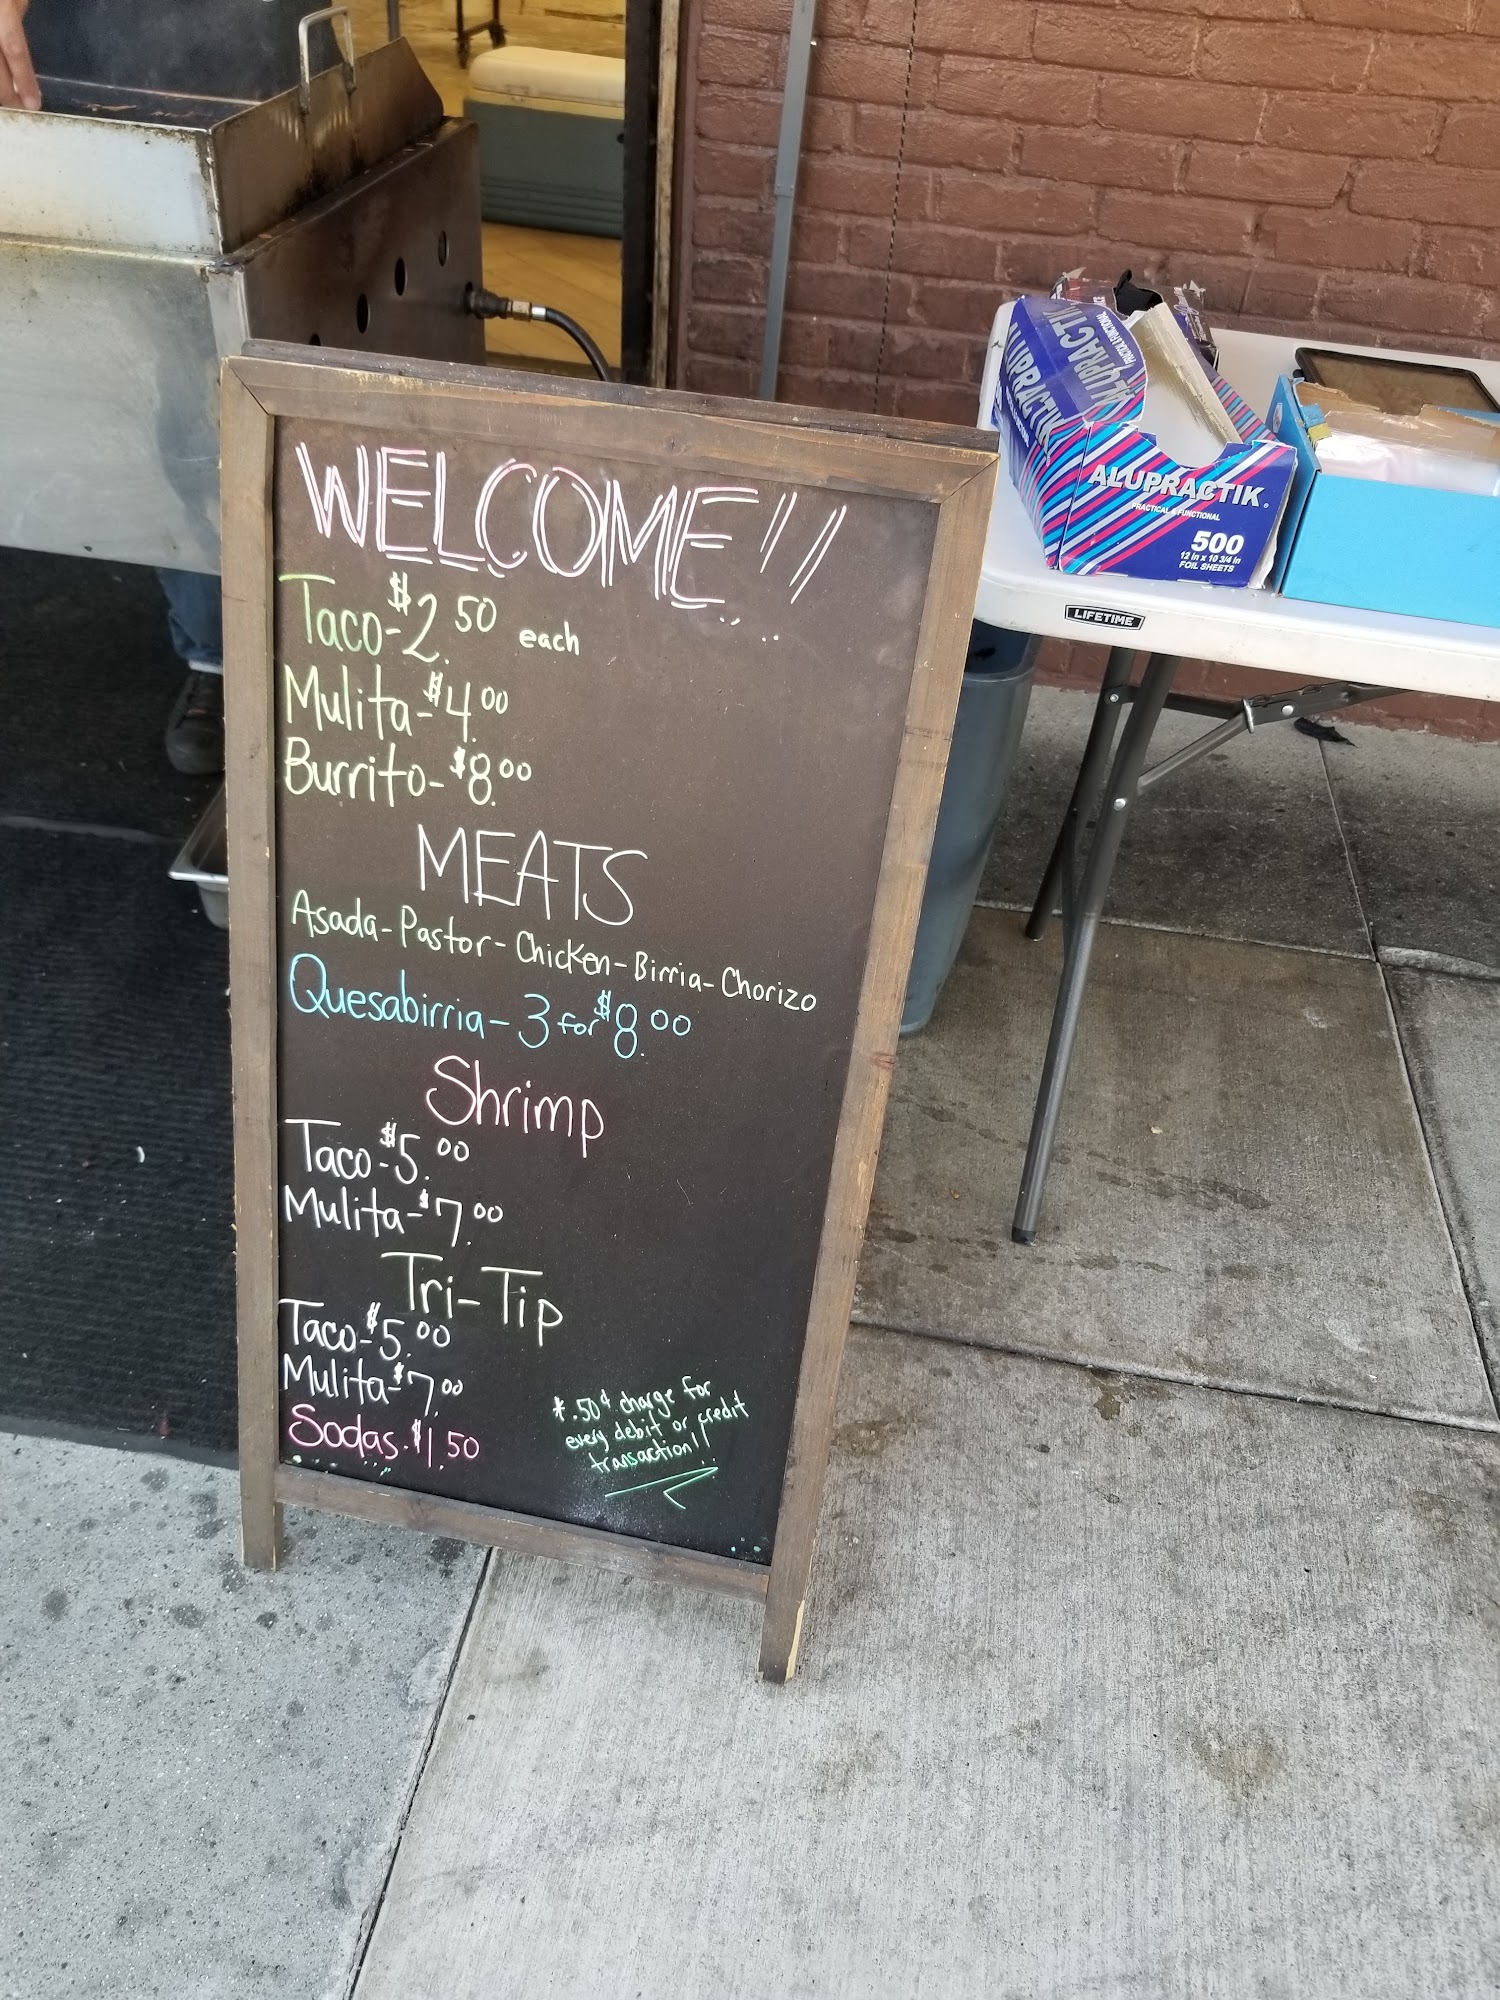 WELCOME!!
Taco-$2.50 each
Mulita-$4.00
Burrito-$8.00
MEATS
Asada-Pastor-Chicken-Birria-Chorizo
Quesabirria-3 for $8.00
Shrimp
Taco-$5.00
Mulita-$7.00
Tri-Tip
Taco-$5.00
Mulita-$7.00
Sodas.$1.50
*.50¢ charge for
every debit or credit
transaction!!
ALUPRACTIK
PRACTICAL & FUNCTIONAL
ALUPRACTIK
ALUPRACTIK®
PRACTICAL & FUNCTIONAL
500
12 in x 10 3/4 in
FOIL SHEETS
LIFETIME